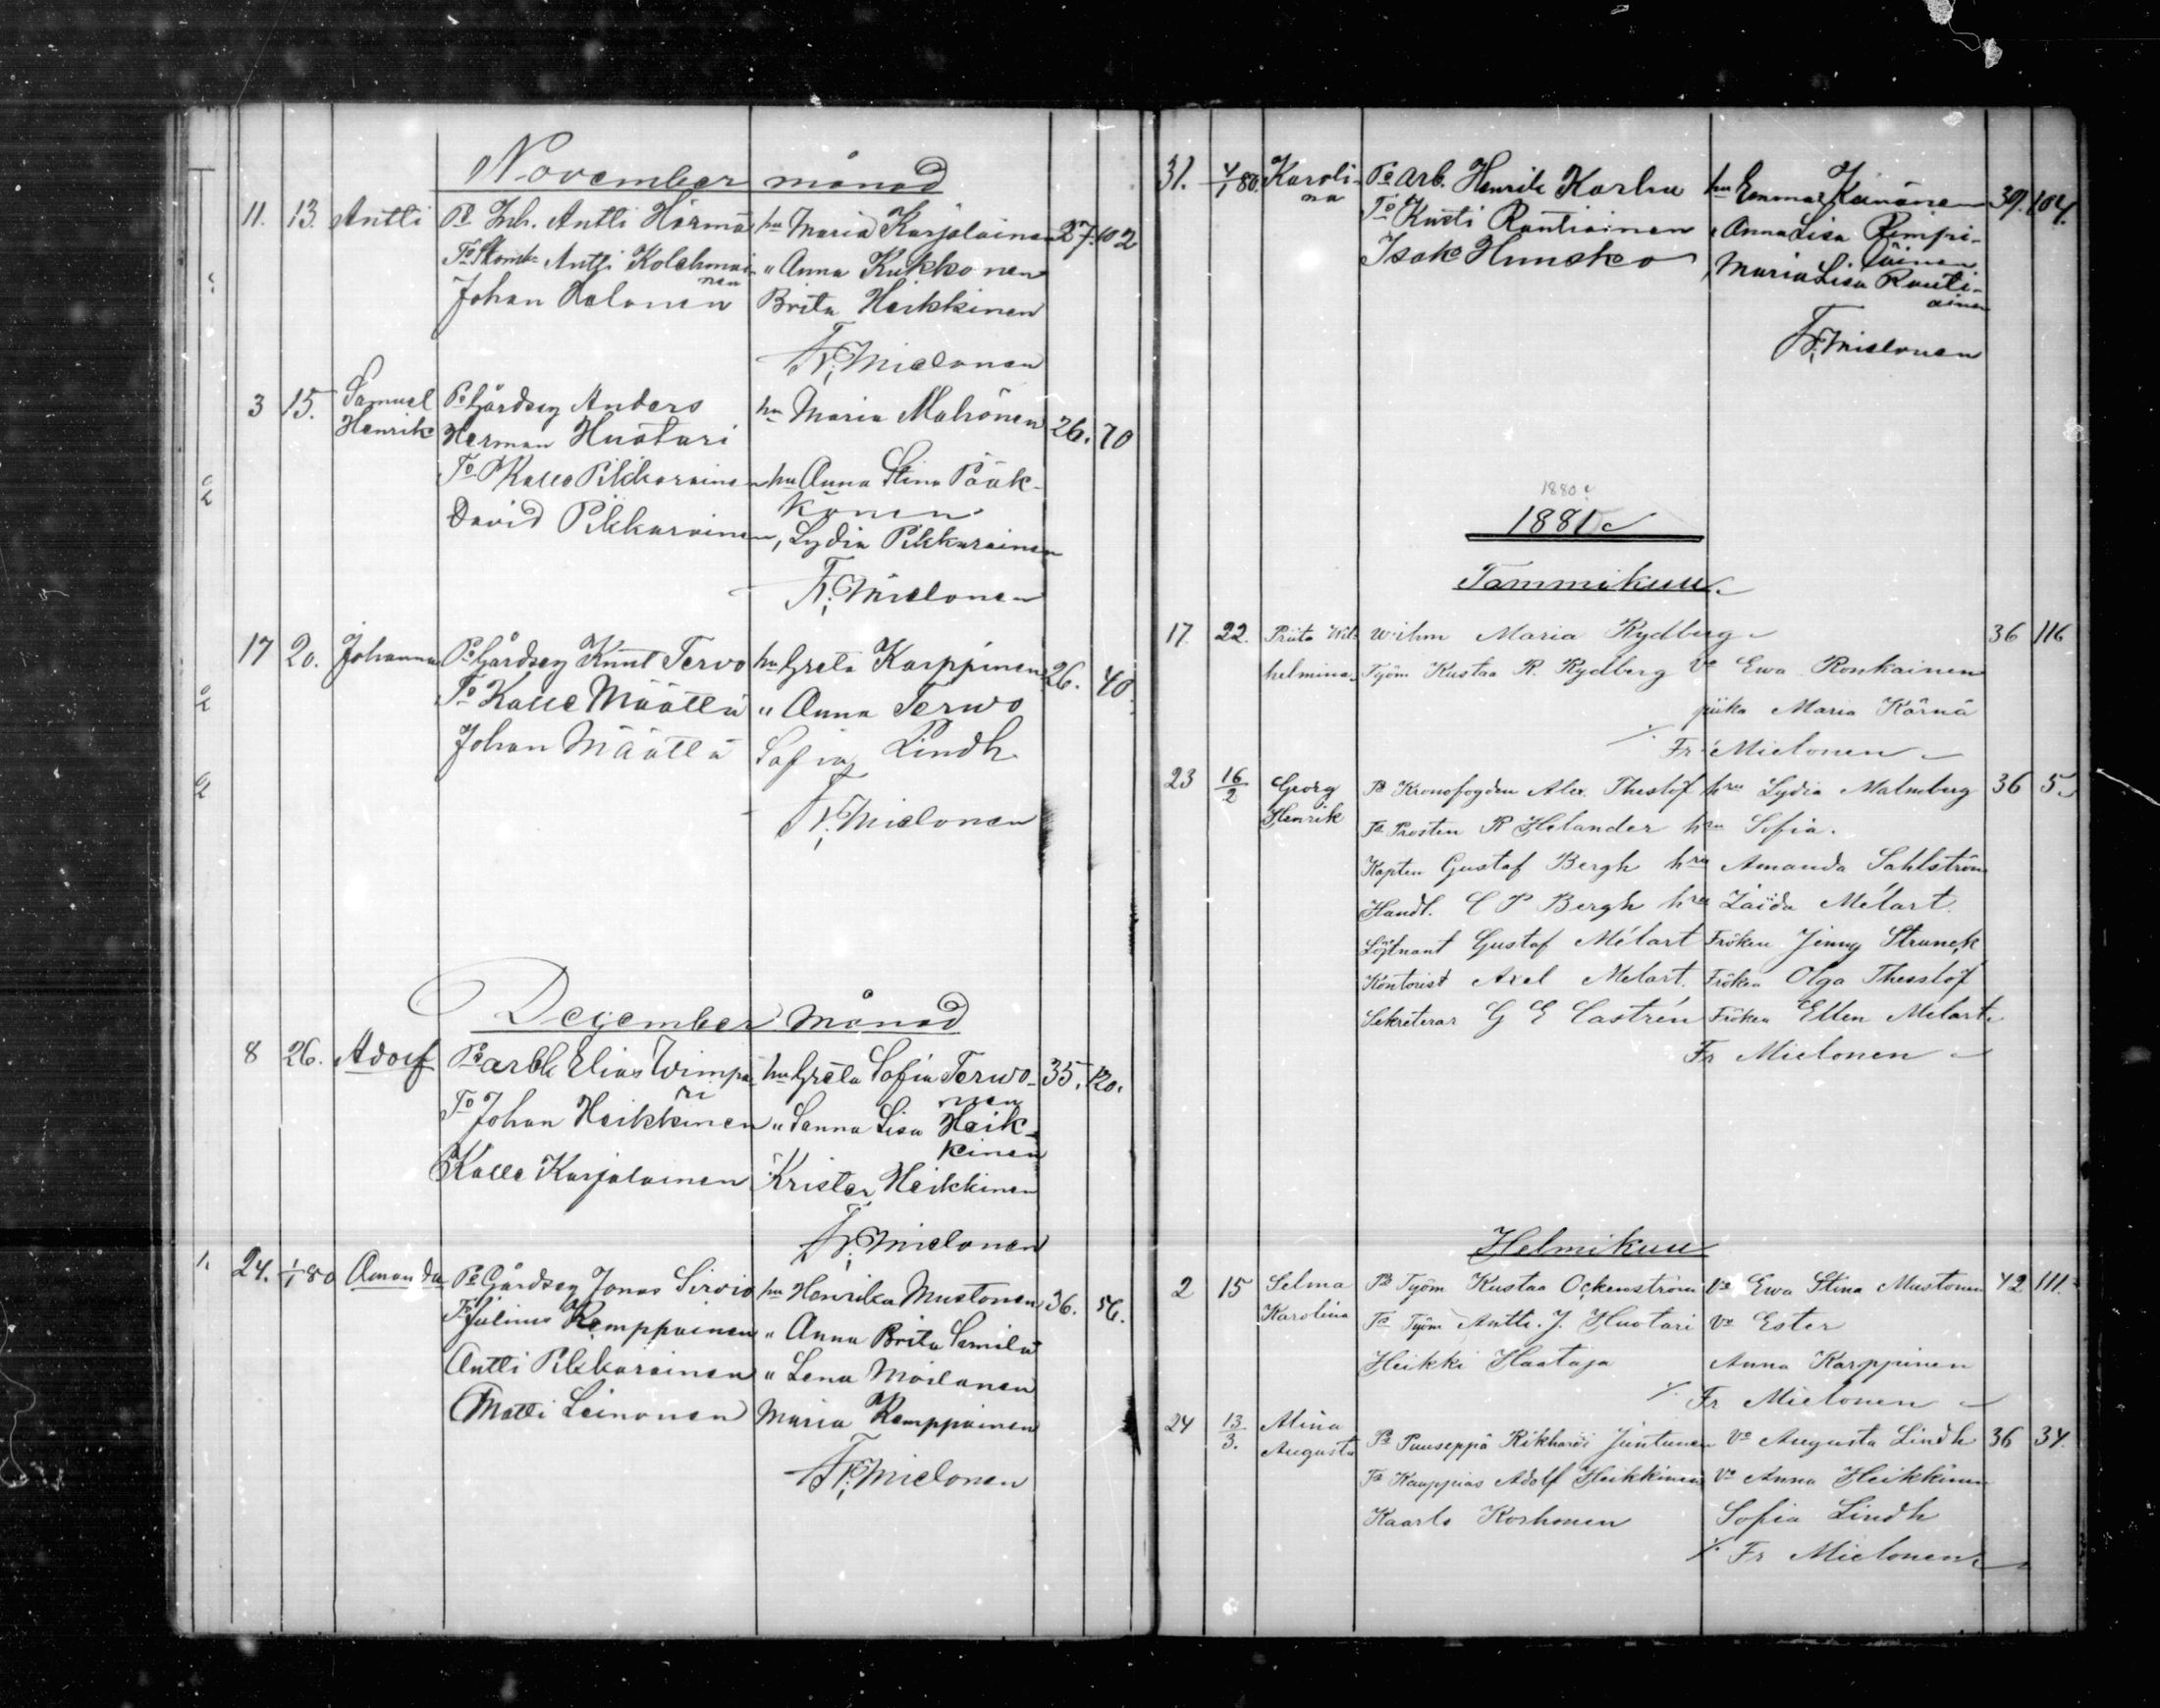 November månad
11. 13. Antti Pe Inh. Antti Härmä hu Maria Karjalainen 27. 102
To Skomk. Antti Kolehmai- " Anna Kukkonen
nen
Johan Halonen Brita Heikkinen
Fr. Mielonen
3 15. Samuel Pe Gårdseg Anders hu Maria Malrönen 26. 70
Henrik Herman Huotari
To Kalle Pikkarainen hu Anna Stina Pääk-
könen
David Pikkarainen, Lydia Pikkarainen
Fr. Mielonen
17 20. Johanna Pe Gårdseg Knut Tervo hu Greta Karppinen 26. 40
To Kalle Määttä " Anna Terwo
Johan Määttä Sofia Lindh
Fr. Mielonen
Dezember månad
8 26. Adolf Pe arb. Elias Wimpa- hu Greta Sofia Terwo- 35. 120.
ri nen
To Johan Heikkinen " Sanna Lisa Heik-
kinen
Kalle Karjalainen Krister Heikkinen
Fr. Mielonen
1. 24. 1/1 80 Amanda Pe Gårdseg Jonas Sirvio hu Henrika Mustonen 36. 56.
To Julius Kemppainen " Anna Brita Samila
Antti Pikkarainen " Lena Moilanen
Matti Leinonen Maria Kemppainen
Fr. Mielonen
31. 4/1 80 Karoli- Pe Arb. Henrik Karhu hu Emma Kinönen 39. 104.
na
To Kusti Rautiainen " Anna Lisa Rimpi-
läinen
Isak Hunsko " Maria Lisa Rauti-
ainen
Fr. Mielonen
1880
1881
Tammikuu
17. 22. Priita Wil- w. ihm Maria Rydberg 36 116
helmina Työm Kustaa R. Rydberg Vo Ewa Ronkainen
piika Maria Kärnä
Fr Mielonen
23 16/2 Georg Pe Kronofogden Alex. Theslöf hru Lydia Malmberg 36 5.
Henrik To Prosten R Helander hru Sofia.
Kapten Gustaf Bergh hru Amanda Sahlström
Handl. C P Bergh hru Zaida Mélart
Löjtnant Gustaf Mélart Fröken Jenny Strunck
Kontorist Axel Melart. Fröken Olga Thesslöf
Sekreterar G E Castrén Fröken Ellen Melart
Fr Mielonen
Helmikuu
2 15 Selma Pe Työm Kustaa Ockenström Vo Ewa Stina Mustonen 42 111.
Karolina To Työm Antti. J. Huotari Vo Ester
Heikki Haataja Anna Karppinen
Fr Mielonen
24 13/3. Alina
Augusta Pe Puuseppä Rikhard Juntunen Vo Augusta Lindh 36 34.
To Kauppias Adolf Heikkinen Vo Anna Heikkinen
Kaarlo Korhonen Sofia Lindh
Fr Mielonen